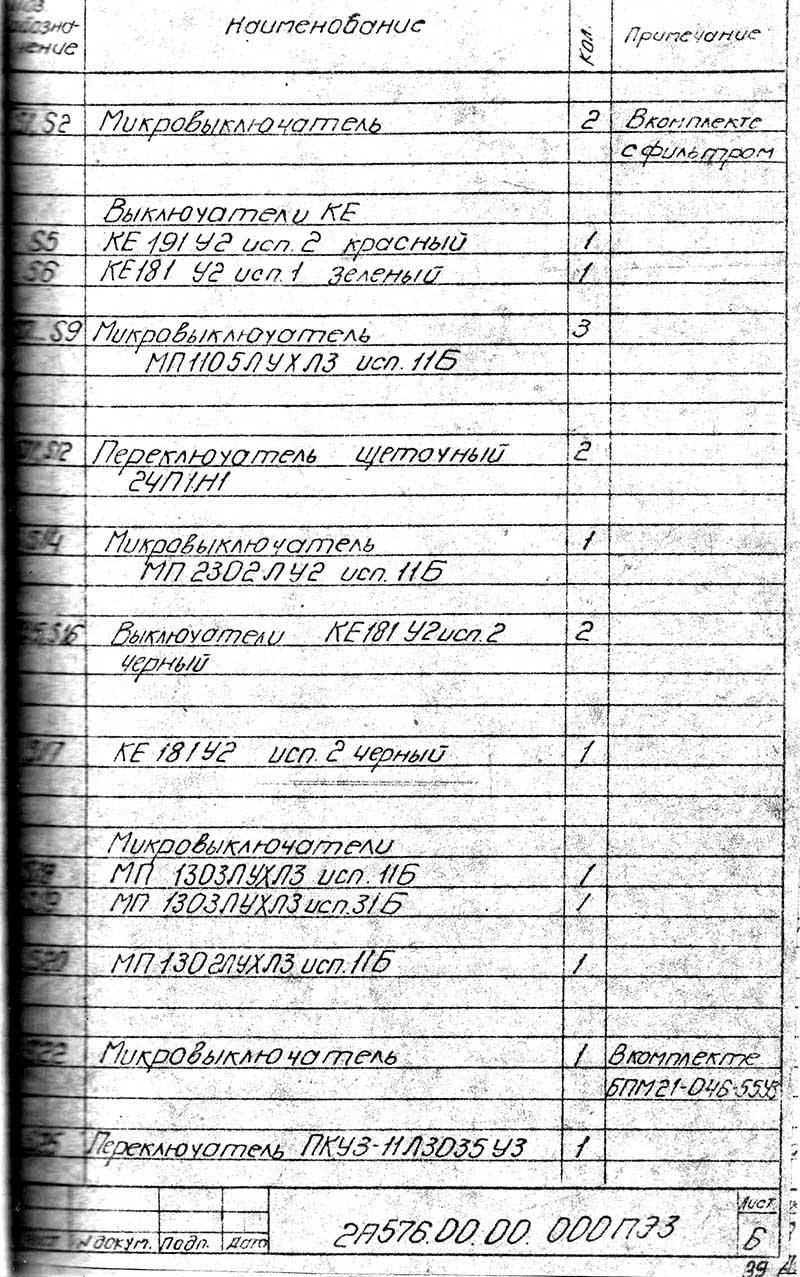 Наименование Кол. Примечание
нение
S2 Микровыключатель 2 В комплекте
с фильтром
Выключатели КЕ
S5 КЕ 191 У2 исп. 2 красный 1
S6 КЕ181 У2 исп. 1 зеленый 1
S9 Микровыключатель 3
МП1105ЛУХЛ3 исп. 11Б
S12 Переключатель щеточный 2
24П1Н1
S14 Микровыключатель 1
МП 2302ЛУ2 исп. 11Б
S16 Выключатели КЕ181 У2 исп. 2 2
черный
S17 КЕ 181 У2 исп. 2 черный 1
Микровыключатели
МП 1303ЛУХЛ3 исп. 11Б 1
МП 1303ЛУХЛ3 исп. 31Б 1
S20 МП 1302ЛУХЛ3 исп. 11Б 1
Микровыключатель 1 В комплекте
БПМ21-046-55У3
Переключатель ПКУ3-11Л3035 У3 1
2А576.00.00.000ПЭ3 Лист
N докум. Подп. Дата 6
39